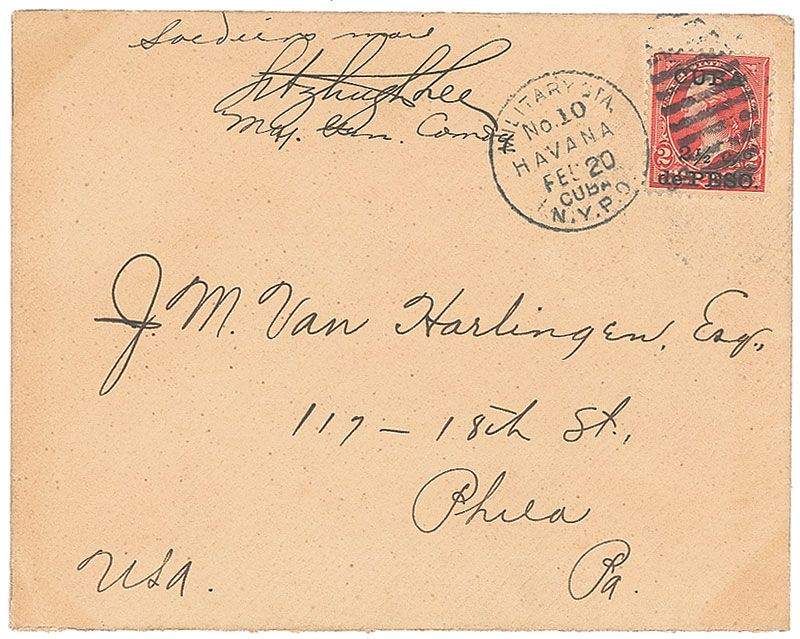 Soldiers mail
Fitzhugh Lee
Maj. Gen. Comdg
MILITARY STA.
No. 10
HAVANA
FEB 20
CUBA
N.Y.P.O.
CUBA
2
2½ c.
de PESO.
J. M. Van Harlingen, Esq.,
117 – 18th St.,
Phila
Pa.
USA.